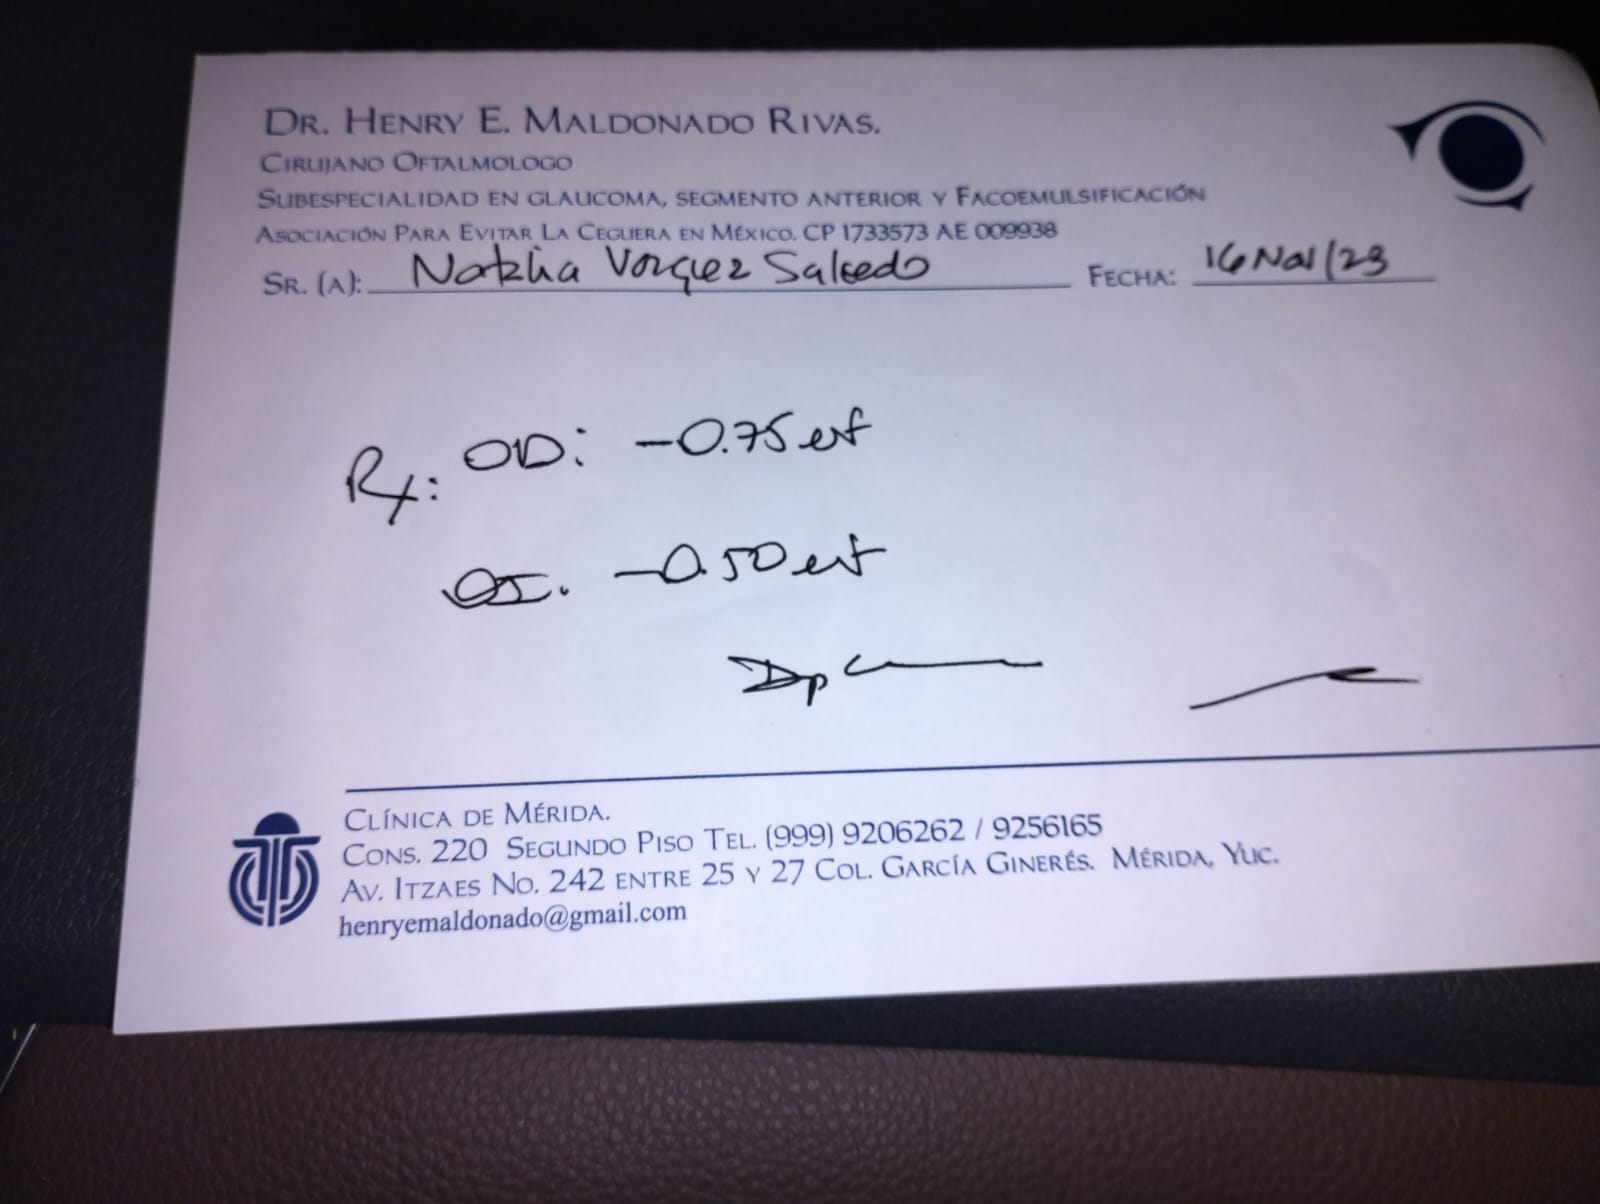 DR. HENRY E. MALDONADO RIVAS.
CIRUJANO OFTALMOLOGO
SUBESPECIALIDAD EN GLAUCOMA, SEGMENTO ANTERIOR Y FACOEMULSIFICACIÓN
ASOCIACIÓN PARA EVITAR LA CEGUERA EN MÉXICO. CP 1733573 AE 009938
SR. (A): Natalia Vazquez Salcedo FECHA: 16 Nov/23
Rx: OD: -0.75 esf
OI. -0.50 esf
Dp
CLÍNICA DE MÉRIDA.
CONS. 220 SEGUNDO PISO TEL. (999) 9206262 / 9256165
AV. ITZAES NO. 242 ENTRE 25 Y 27 COL. GARCÍA GINERÉS. MÉRIDA, YUC.
henryemaldonado@gmail.com